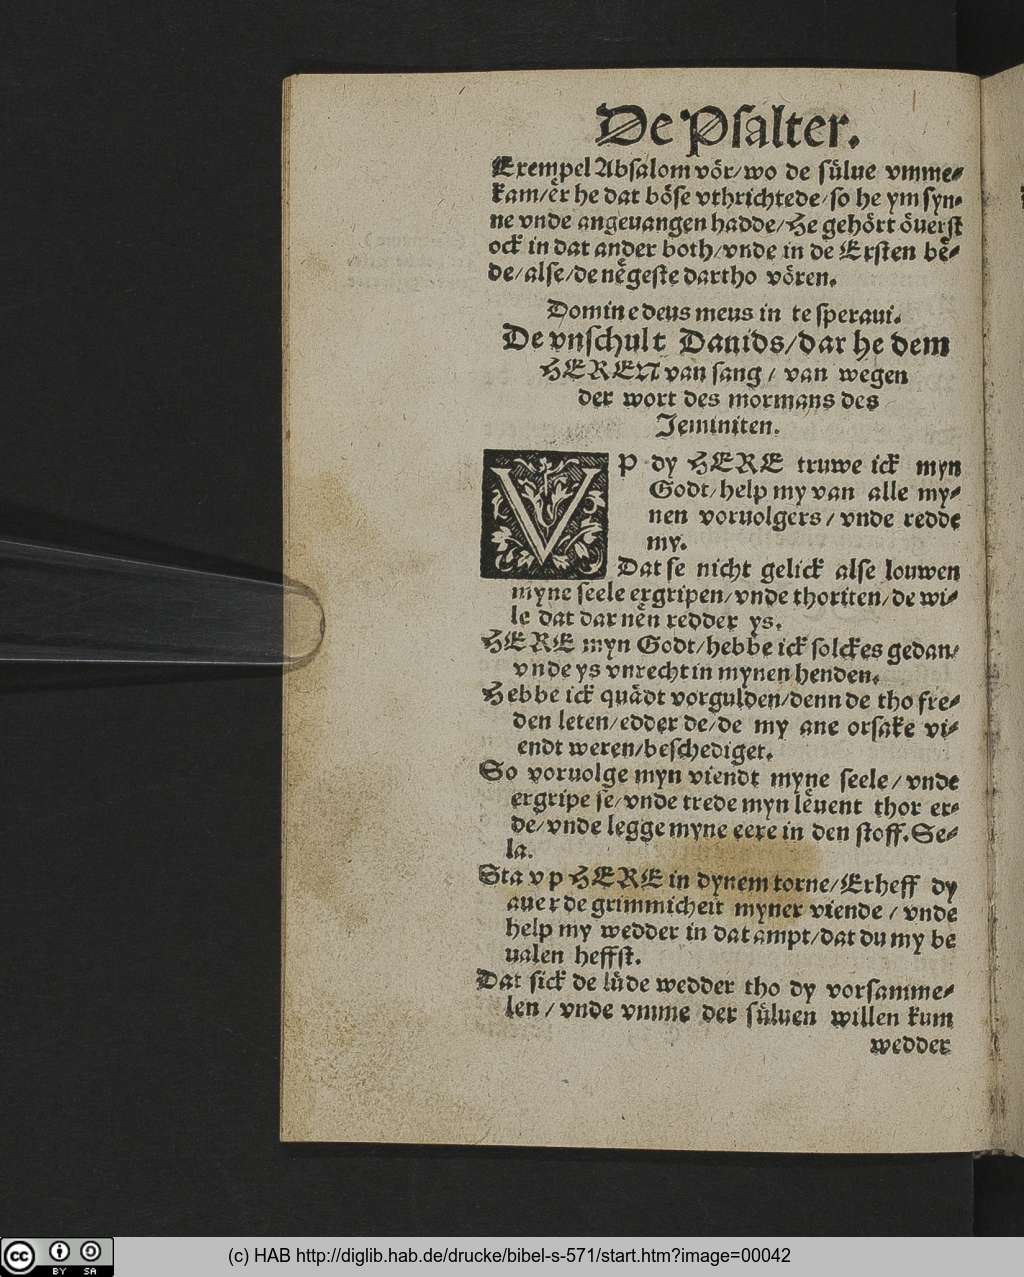 De Psalter.
Exempel Absalom vör/wo de sülue vmme-
kam/er he dat böse vthrichtede/so he ym syn-
ne vnde angeuangen hadde/He gehört öuerst
ock in dat ander both/vnde in de Ersten be-
de/alse/de negeste dartho vören.
Domine deus meus in te speraui.
De vnschult Dauids/dar he dem
HEREN van sang/ van wegen
der wort des mormans des
Jeminiten.
VP dy HERE truwe ick myn
Godt/help my van alle my-
nen voruolgers/ vnde redde
my.
Dat se nicht gelick alse louwen
myne seele ergripen/vnde thoriten/de wi-
le dat dar nen redder ys.
HERE myn Godt/hebbe ick solckes gedan/
vnde ys vnrecht in mynen henden.
Hebbe ick quadt vorgulden/denn de tho fre-
den leten/edder de/de my ane orsake vi-
endt weren/beschediget.
So voruolge myn viendt myne seele/ vnde
ergripe se/vnde trede myn leuent thor er-
de/vnde legge myne eere in den stoff.Se-
la.
Sta vp HERE in dynem torne/Erheff dy
auer de grimmicheit myner viende/ vnde
help my wedder in dat ampt/dat du my be
ualen heffst.
Dat sick de lüde wedder tho dy vorsamme-
len/ vnde vmme der süluen willen kum
wedder
(c) HAB http://diglib.hab.de/drucke/bibel-s-571/start.htm?image=00042
cc BY SA